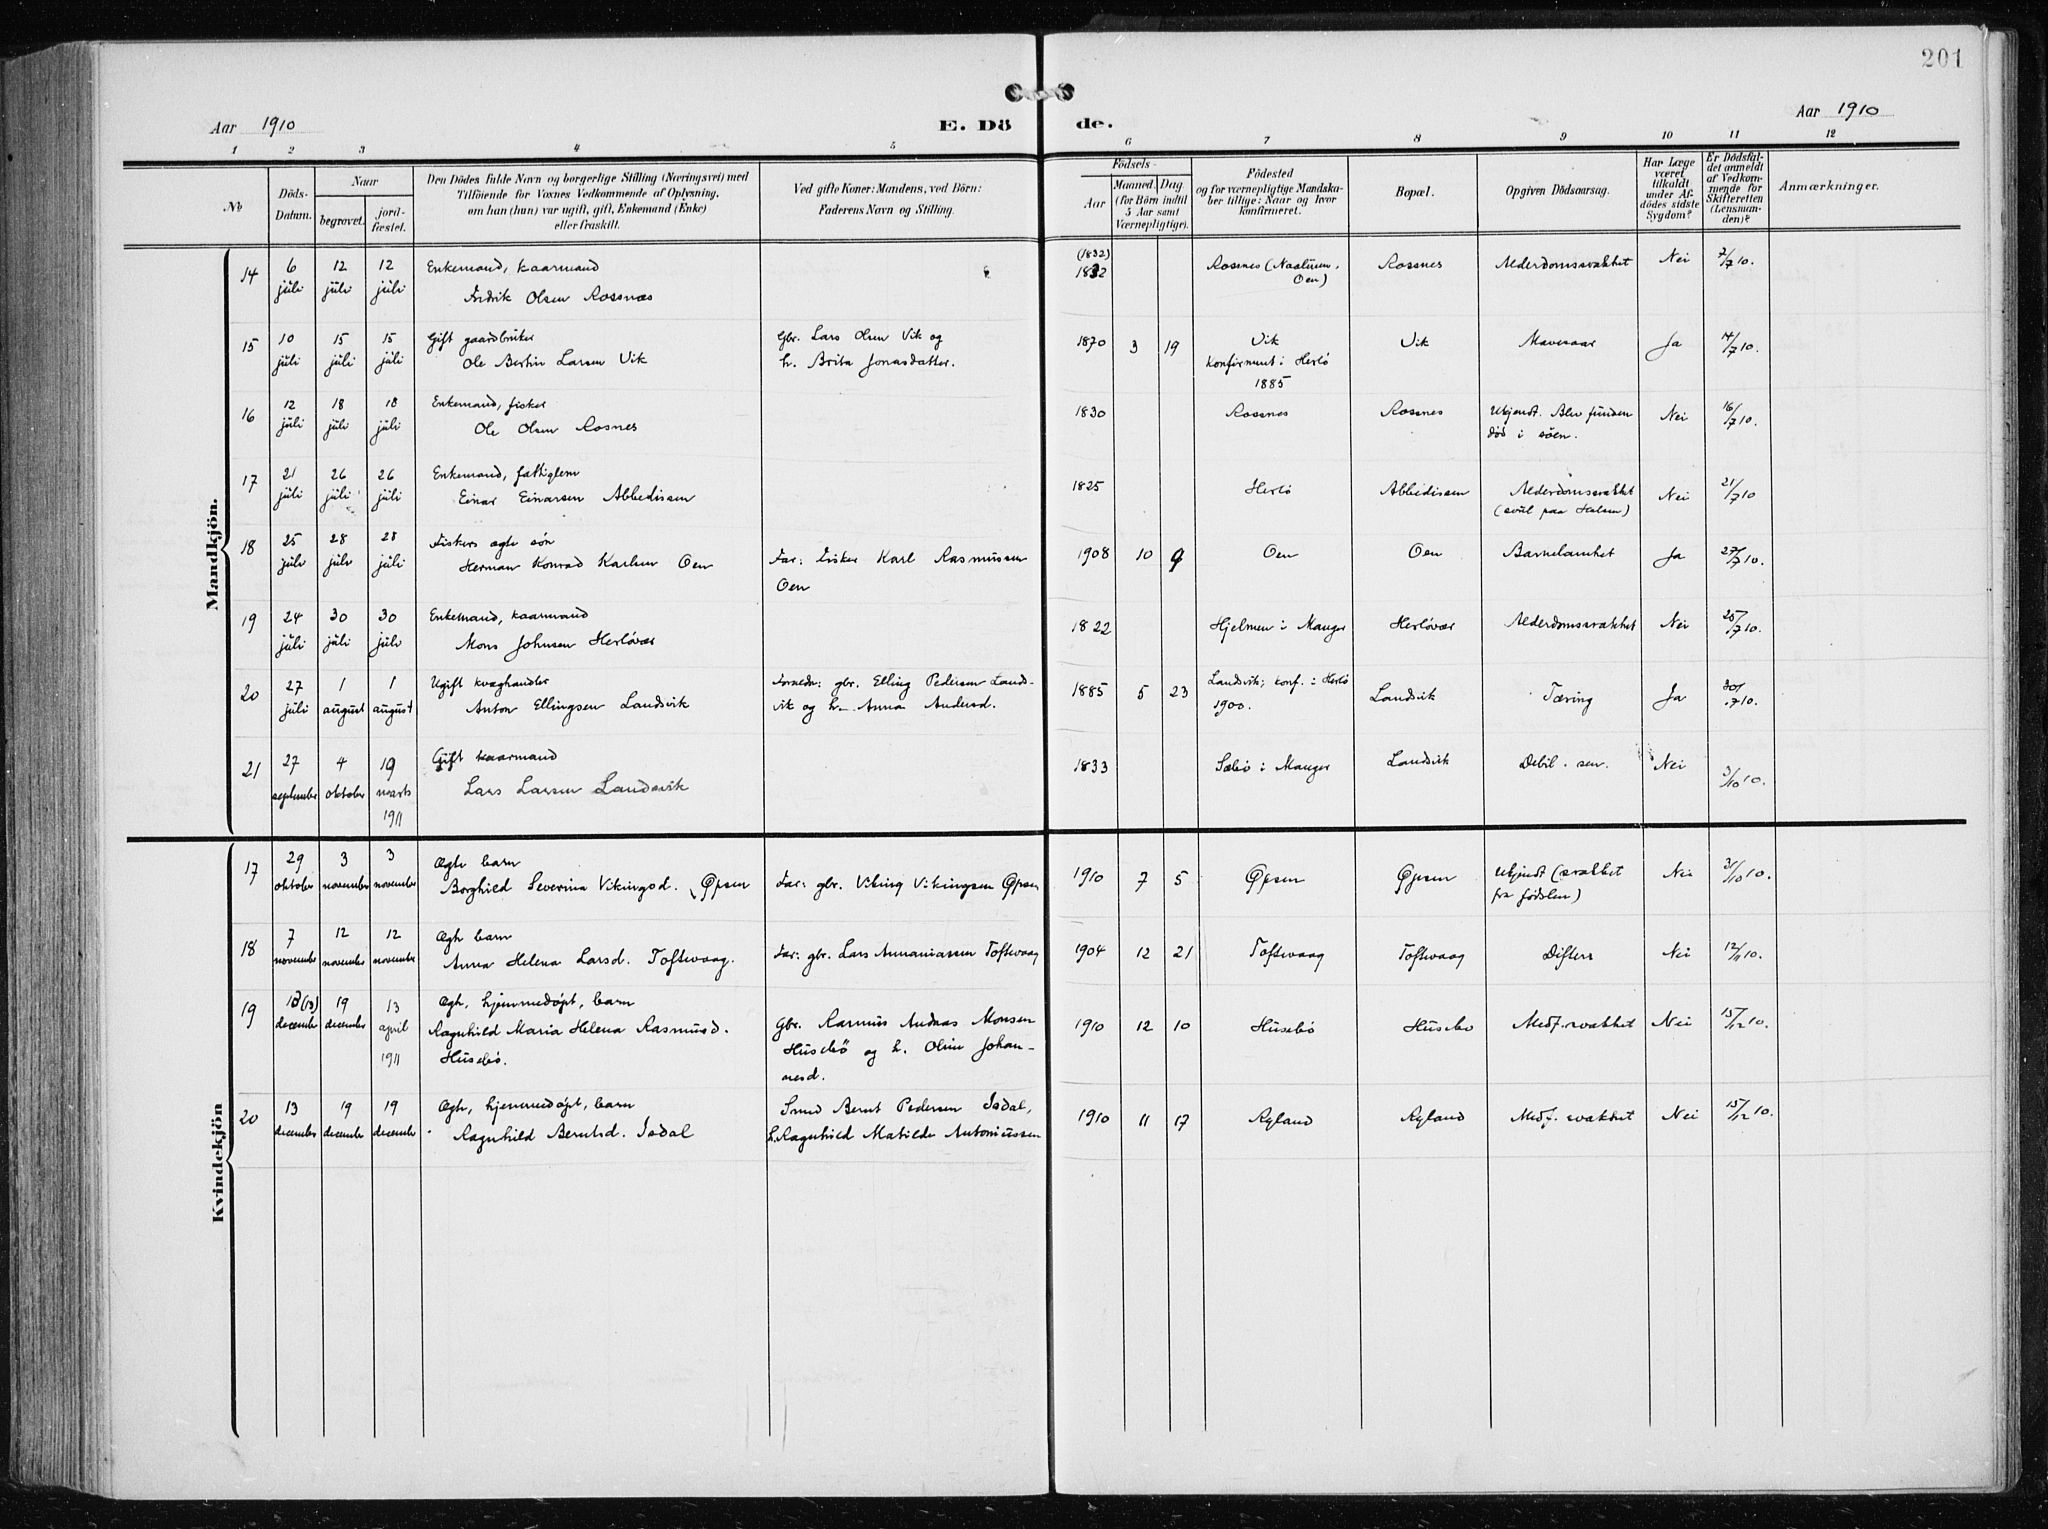 201
Aar 1910
E. Dö de.
Aar 1910
1 2 3 4 5 6 7 8 9 10 11 12
No
Döds-Datum.
Naar
begrovet.
jord-fæstet.
Den Dödes fulde Navn og borgerlige Stilling (Næringsvei) med
Tilföiende for Voxnes Vedkommende af Oplysning,
om han (hun) var ugift, gift, Enkemand (Enke)
eller fraskilt.
Ved gifte Koner: Mandens, ved Börn:
Faderens Navn og Stilling.
Födsels-
Aar
Maaned. Dag
(for Börn indtil
5 Aar samt
Værnepligtige).
Födested
og for værnepligtige Mandska-
ber tillige: Naar og hvor
konfirmeret.
Bopæl.
Opgiven Dödsaarsag.
Har Læge
været
tilkaldt
under Af-
dödes sidste
Sygdom?
Er Dödsfal-
det anmeldt
af Vedkom-
mende for
Skifteretten
(Lensman-
den)?
Anmærkninger.
Mandkjön.
14 6 juli 12 juli 12 juli Enkemand, kaarmand
Fredrik Olsen Rossnæs
(1832)
1832 Rossnes (Naastuen, Oen) Rossnes Alderdomssvakhet Nei 7/7 10.
15 10 juli 15 juli 15 juli Gift gaardbruker
Ole Bertin Larsen Vik
Gbr. Lars Olsen Vik og
h. Brita Jonasdatter.
1870 3 19 Vik
konfirmert i Herlö
1885
Vik Mavesaar Ja 14/7 10.
16 12 juli 18 juli 18 juli Enkemand, fisker
Ole Olsen Rosnes
1830 Rossnes Rossnes Ukjendt. Blev funden
död i söen. Nei 16/7 10.
17 21 juli 26 juli 26 juli Enkemand, fattiglem
Einar Einarsen Abbedissen
1825 Herlö Abbedissen Alderdomssvakhet
(svul paa Halsen) Nei 21/7 10
18 25 juli 28 juli 28 juli Fiskers ægte sön
Herman Konrad Karlsen Oen
Far: Fisker Karl Rasmussen
Oen
1908 10 9 Oen Oen Barnelamhet Ja 27/7 10.
19 24 juli 30 juli 30 juli Enkemand, kaarmand
Mons Johnsen Herlövær
1822 Hjelmen i Manger Herlövær Alderdomssvakhet Nei 25/7 10.
20 27 juli 1 august 1 august Ugift kvæghandler
Anton Ellingsen Landsvik
Foreldr: gbr. Elling Pedersen Lands-
vik og h. Anna Andersd.
1885 5 23 Landsvik; konf. i Herlö
1900. Landsvik Tæring Ja 30/7 10.
21 27 september 4 oktober 19 marts 1911 Gift kaarmand
Lars Larsen Landsvik
1833 Sæbö i Manger Landsvik Debil. sen. Nei 3/10 10.
Kvindekjön
17 29 oktober 3 november 3 november Ægte barn
Borghild Severina Vikingsd. Øpsen
Far: gbr. Viking Vikingsen Øpsen
1910 7 5 Øpsen Øpsen Ukjendt (svakhet
fra födslen) Nei 31/10 10.
18 7 november 12 november 12 november Ægte barn
Anna Helena Larsd. Toftevaag.
Far: gbr. Lars Annaniassen Toftevaag
1904 12 21 Toftevaag Toftevaag Difteri Nei 12/11 10.
19 13 (13) december 19 december 13 april 1911 Ægte, hjemmedöpt, barn
Ragnhild Maria Helena Rasmusd.
Husebö.
Gbr. Rasmus Andreas Monsen
Husebö og h. Oline Johan-
nesd.
1910 12 10 Husebö Husebö Medf. svakhet Nei 15/12 10.
20 13 december 19 december 19 december Ægte, hjemmedöpt, barn
Ragnhild Berntsd. Isdal
Smed Bernt Pedersen Isdal,
h. Ragnhild Matilde Antoniussen
1910 11 17 Ryland Ryland Medf. svakhet Nei 15/12 10.